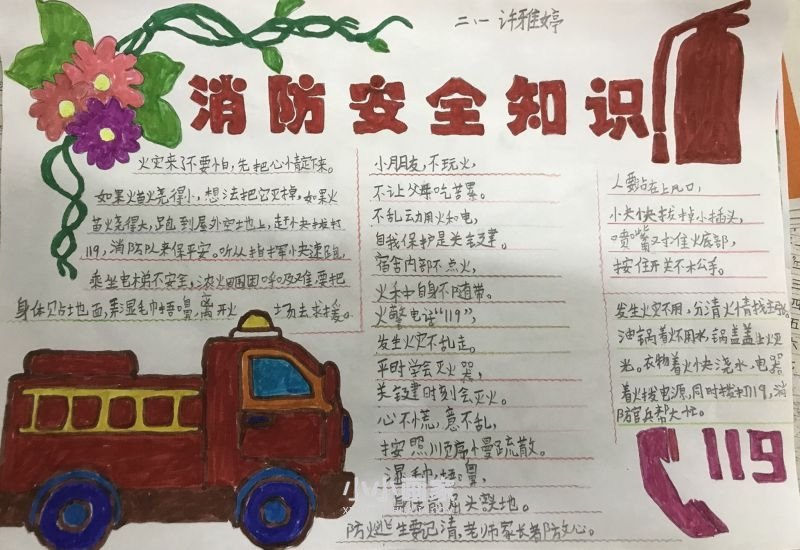 二.1 许雅婷
消防安全知识
火灾来了不要怕,先把心情定下来。
如果火苗烧得小,想法把它灭掉,如果火
苗烧得大,跑到屋外空地上,赶快拨打
119,消防队来保平安。听从指挥快速跑,
乘坐电梯不安全,浓火困困呼吸难,要把
身体贴地面,弄湿毛巾捂鼻,离开火 场去求援。
小朋友,不玩火,
不让父母吃苦累。
不乱动用火和电,
自我保护是关键。
宿舍内部不点火,
火种自身不随带。
火警电话“119”,
发生火灾不乱走。
平时学会灭火器,
关键时刻会灭火。
心不慌,意不乱,
按照顺序慢疏散。
湿种捂鼻,
身体前屈头
地。
防火 生要记清,老师家长者防放心。
人要站在上风口,
小夬快拔掉小插头,
喷嘴对住火底部,
按住开关不松手。
发生火灾不用,分清火情找主
油锅着火不用水,锅盖盖上火灾
光。衣物着火快浇水,电器
着火拨电源,同时拨打119,消
防官兵帮大忙。
119